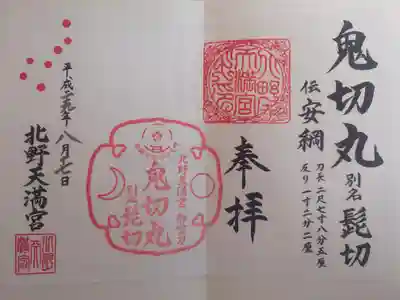 鬼切丸 別名 髭切
伝 安綱 刀長 二尺七寸八分五厘
反り 一寸二分二厘
奉拝
北野天満宮 御宝刀
鬼切丸
別名 髭切
平成二九年八月十七日
北野天満宮